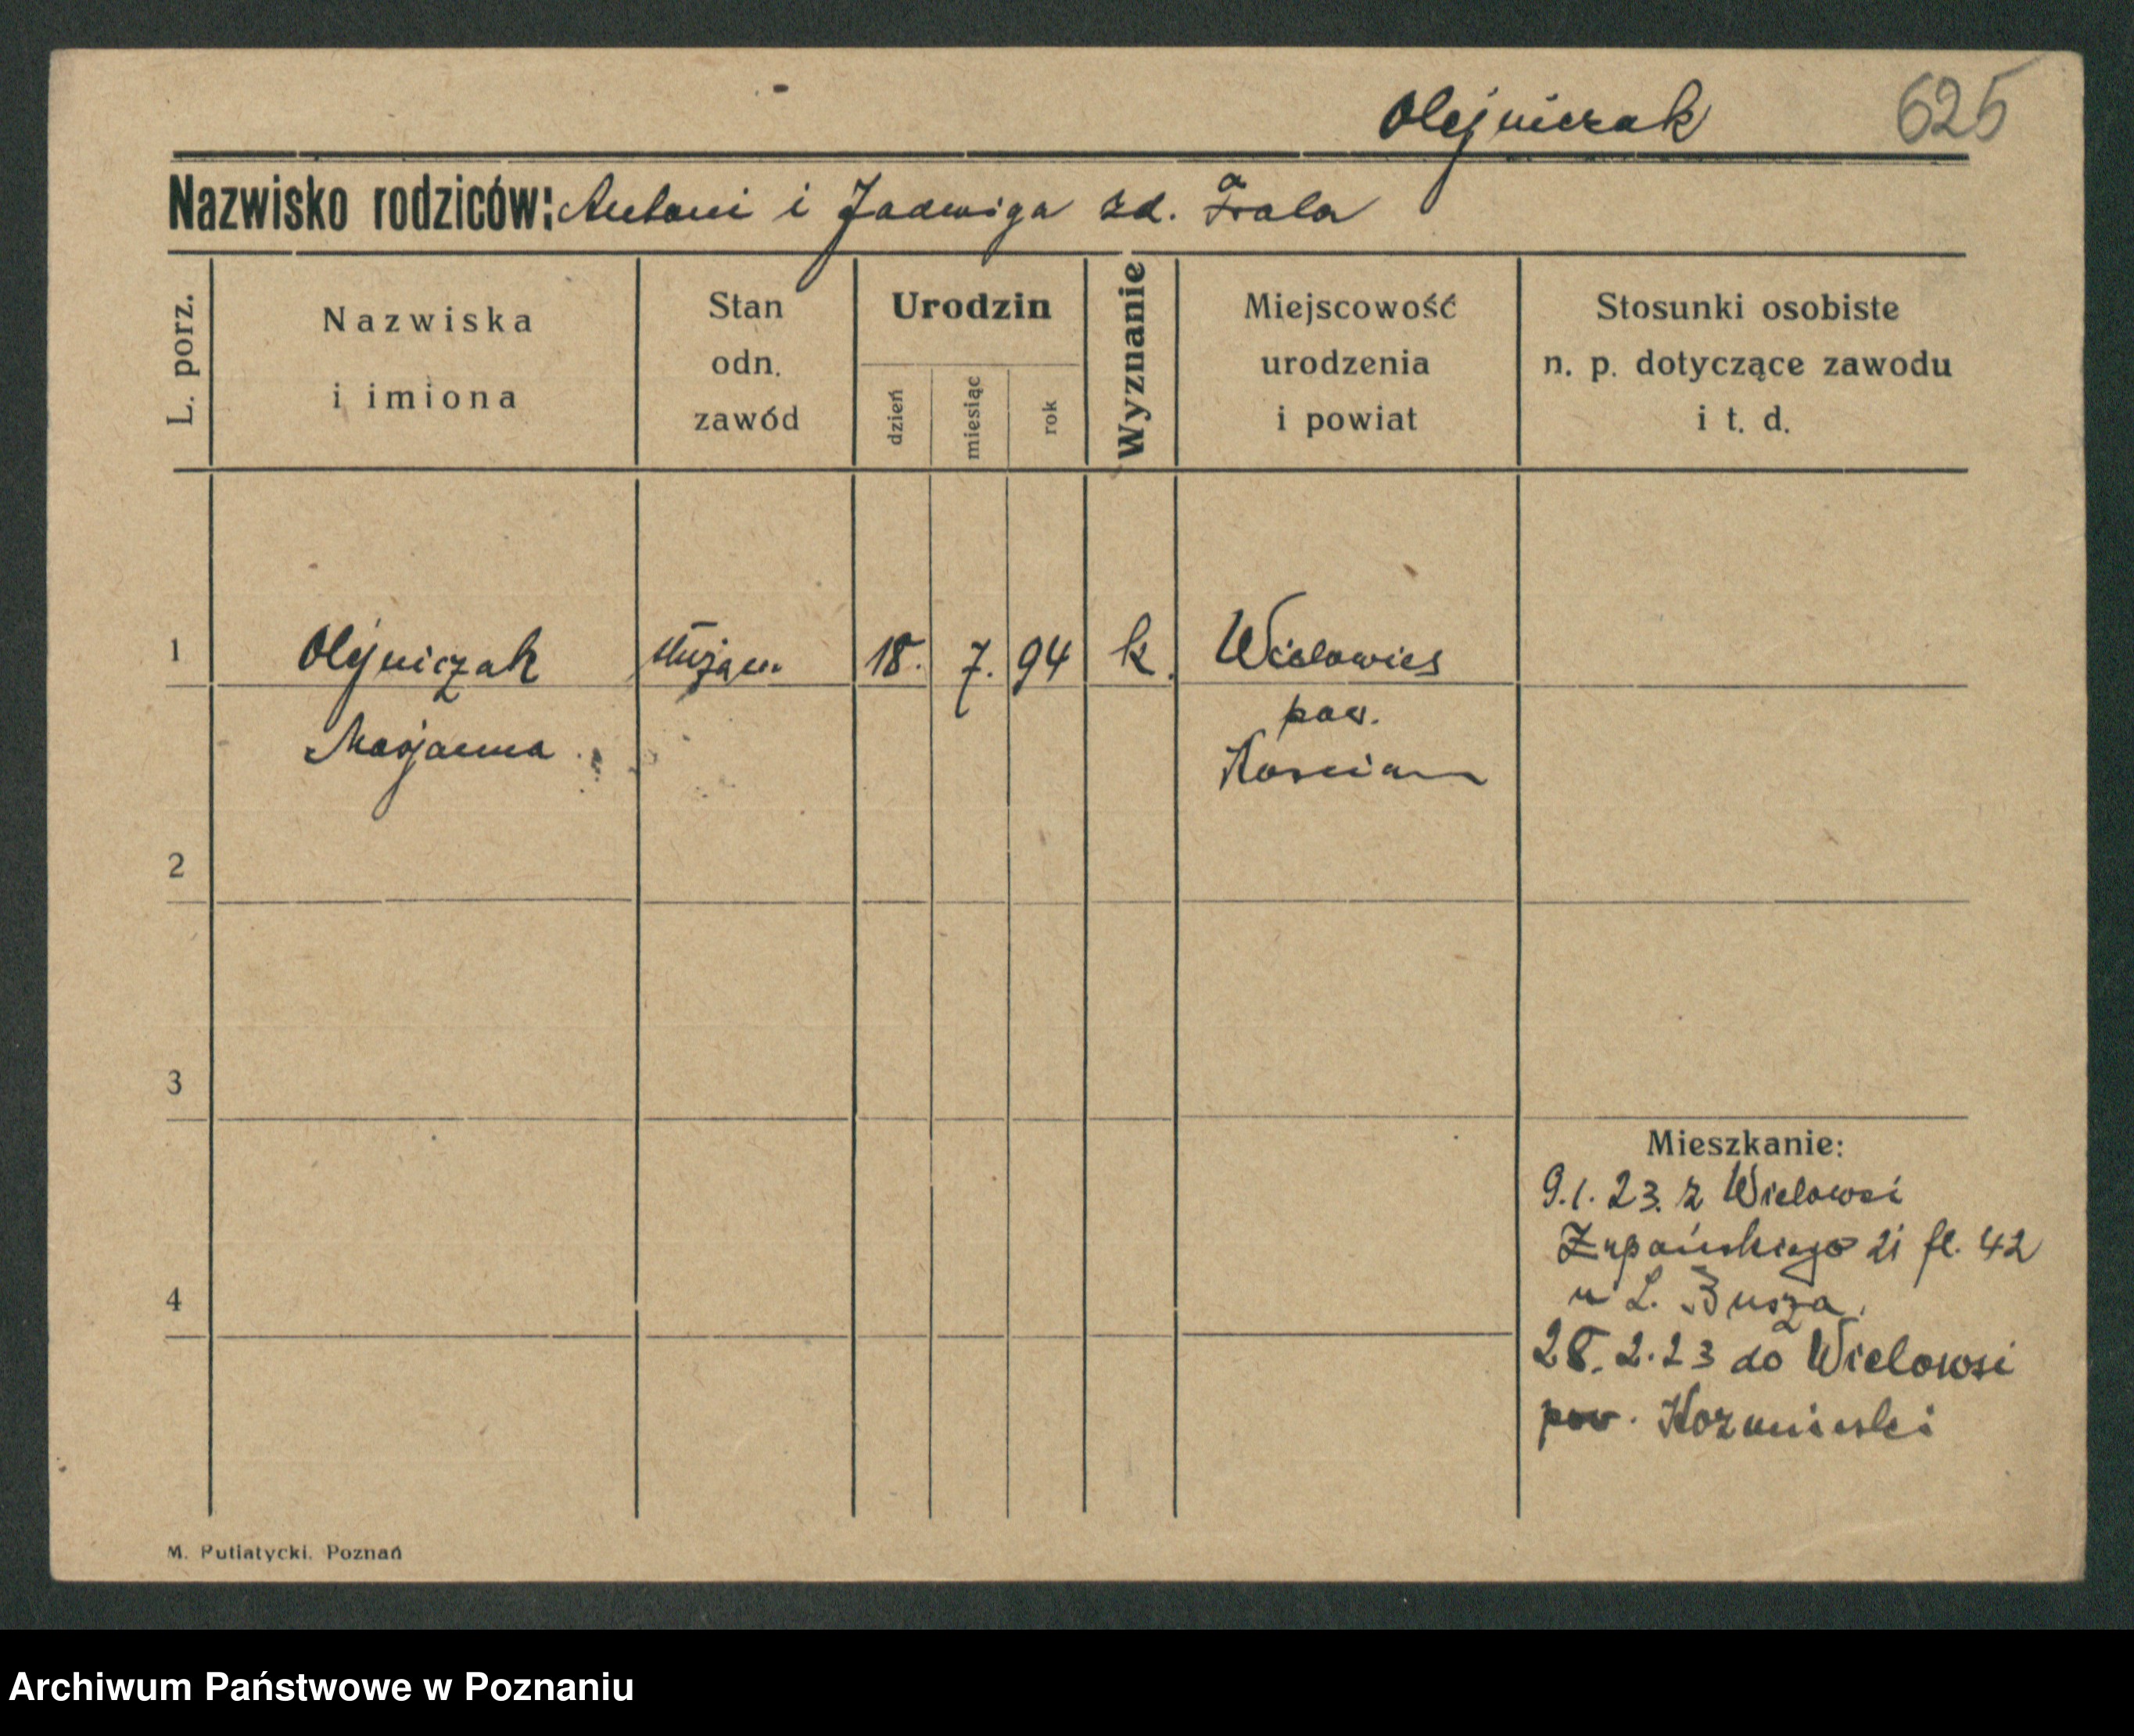 Olejniczak 625
Nazwisko rodziców: Antoni i Jadwiga zd.
L. porz.
Nazwiska
i imiona
Stan
odn.
zawód
Urodzin
dzień
miesiąc
rok
Wyznanie
Miejscowość
urodzenia
i powiat
Stosunki osobiste
n. p. dotyczące zawodu
i t. d.
1 Olejniczak służąca 18. 7. 94 k. Wielowieś
Marjanna pow.
Kościan
2
3
4
Mieszkanie:
9.1.23. z Wielowsi
Żupańskiego 21 fl. 42
u L. Busza.
28.2.23 do Wielowsi
pow. Koźmiński
M. Putiatycki. Poznań
Archiwum Państwowe w Poznaniu